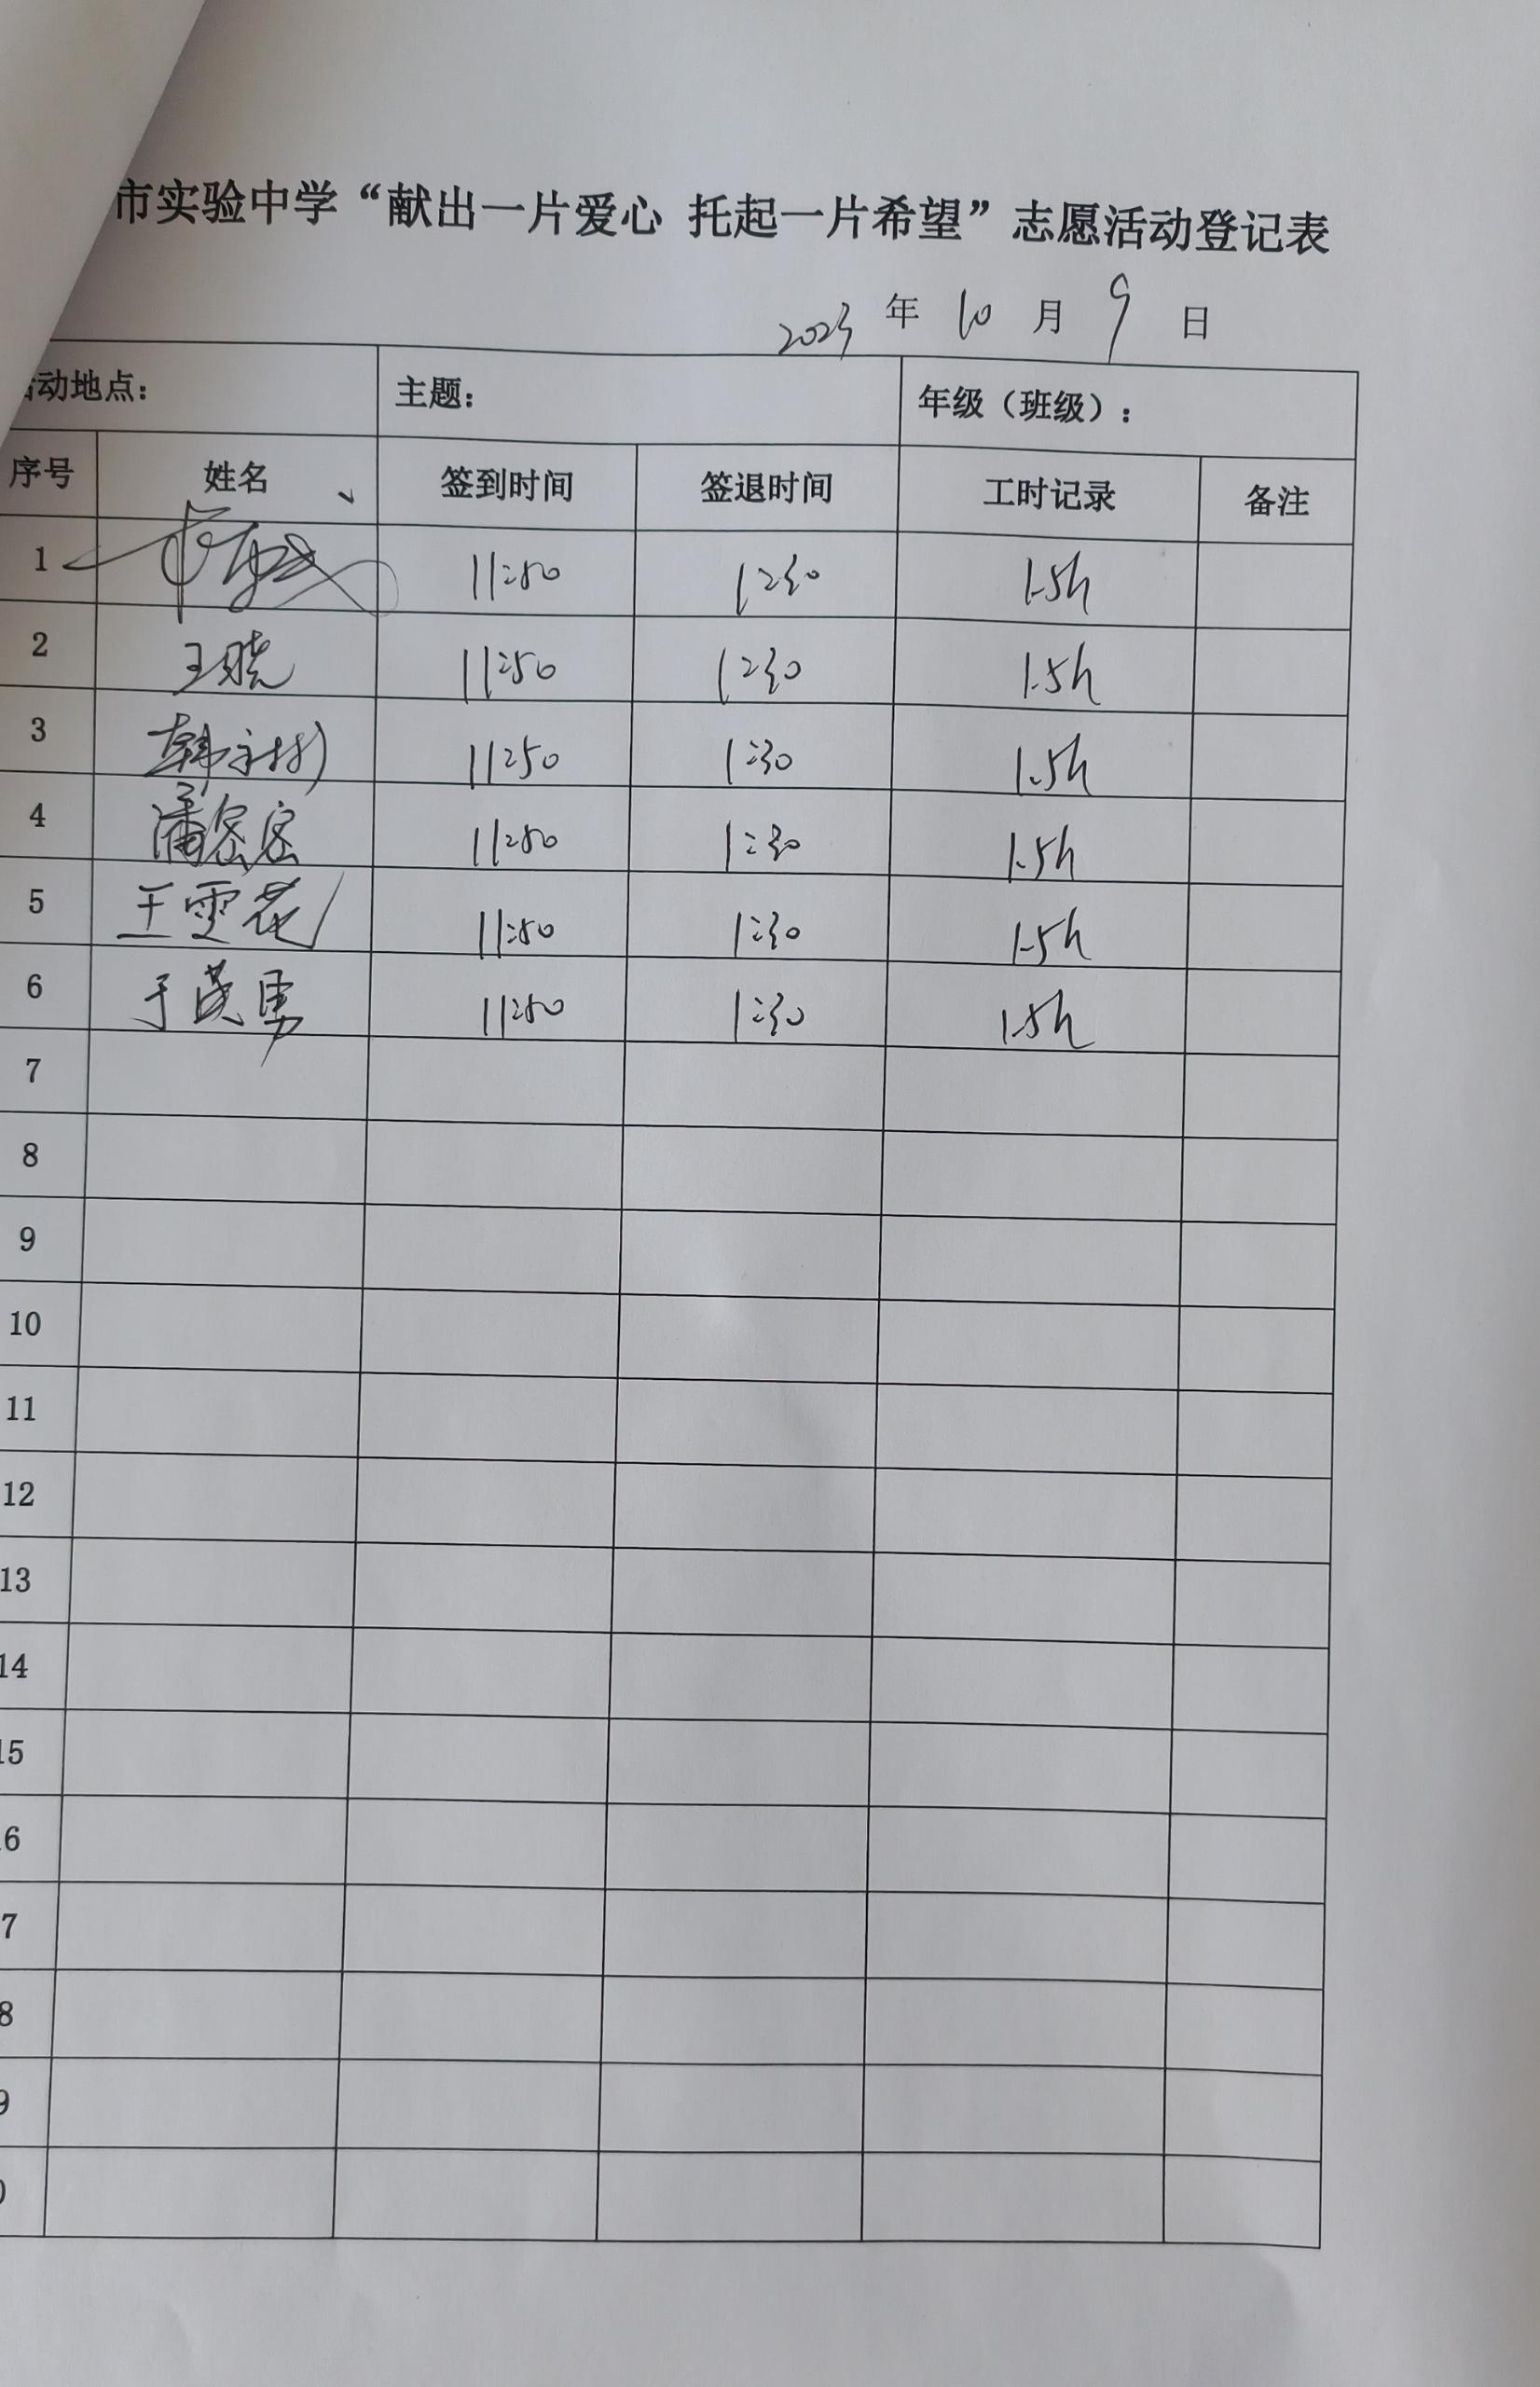 市实验中学“献出一片爱心 托起一片希望”志愿活动登记表
2023 年 10 月 9 日
活动地点： 主题： 年级（班级）：
序号 姓名 签到时间 签退时间 工时记录 备注
1 11:50 1:30 1.5h
2 王晓 11:50 1:30 1.5h
3 韩 11:50 1:30 1.5h
4 潘密密 11:50 1:30 1.5h
5 王雯花 11:50 1:30 1.5h
6 于茂勇 11:50 1:30 1.5h
7
8
9
10
11
12
13
14
15
6
7
8
9
0